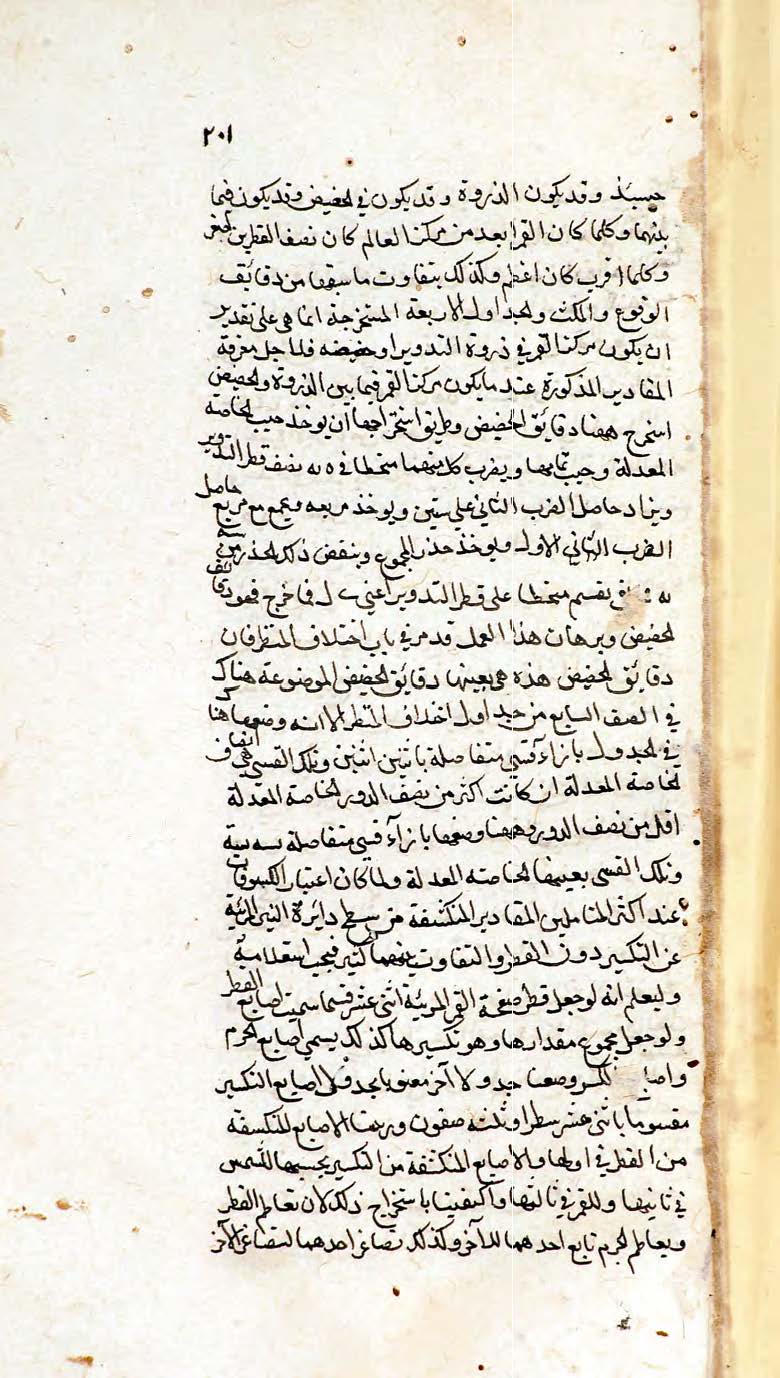 ٢٠١
حينئذ وقد يكون الذروة وقد يكون في الحضيض وقد يكون فيما
بينهما وكلما كان القمر ابعد من مركز العالم كان نصف القطرين اصغر
وكلما اقرب كان اعظم وكذلك يتفاوت ما سبقها من دقائق
الوقوع والمكث والجداول الاربعة المستخرجة انما هي على تقدير
ان يكون مركز القمر في ذروة التدوير او حضيضه فلاجل معرفة
المقادير المذكورة عند ما يكون مركز القمر فيما بين الذروة والحضيض
استخرج ههنا دقائق الحضيض وطريق استخراجها ان يوخذ جيب الخاصة
المعدلة وجيب تمامها ويضرب كل منهما منحطا في ه يه نصف قطر التدوير
ويزاد حاصل الضرب الثاني على ستين ويوخذ مربعه ويجمع مع مربع حاصل
الضرب الاول ويوخذ جذر المجموع وينقص ذلك الجذر من سه
يه يقسم منحطا على قطر التدوير اعني ى ل فما خرج فهو دقائق
الحضيض وبرهان هذا العمل قد مر في باب اختلاف المنظر فان
دقائق الحضيض هذه هي بعينها دقائق الحضيض الموضوعة هناك
في الصف السابع من جداول اختلاف المنظر الا انه وضعها هناك
في الجدول بازاء قسي متفاضلة باثنين اثنين وتلك القسي هي
الخاصة المعدلة ان كانت اكثر من نصف الدور الخاصة المعدلة
اقل من نصف الدور وههنا وضعها بازاء قسي متفاضلة ستة ستة
وتلك القسي بعينها الخاصة المعدلة ولما كان اعتبار الكسوفات
عند اكثر المتاملين المقادير المنكسفة من سطح دائرة النير المرئية
عن التكسير دون القطر والتفاوت بينهما كثير فيجب استعلامه
وليعلم انه لو جعل قطر صفحة القمر المرئية اثنى عشر قسما سميت اصابع القطر
ولو جعل مجموع مقدارها وهو تكسيرها كذلك يسمى اصابع الجرم
واصابع التكسير وضعنا جدولا آخر معنونا بجدول اصابع التكسير
مقسوما باثنى عشر سطرا وثلثة صفوف ورسمنا الاصابع المنكسفة
من القطر في اولها والاصابع المنكسفة من التكسير بحسبها للشمس
في ثانيها وللقمر في ثالثها واكتفينا باستخراج ذلك لان تعاظم القطر
وتعاظم الجرم تابع احدهما للآخر وكذلك تصاغر احدهما لتصاغر الآخر